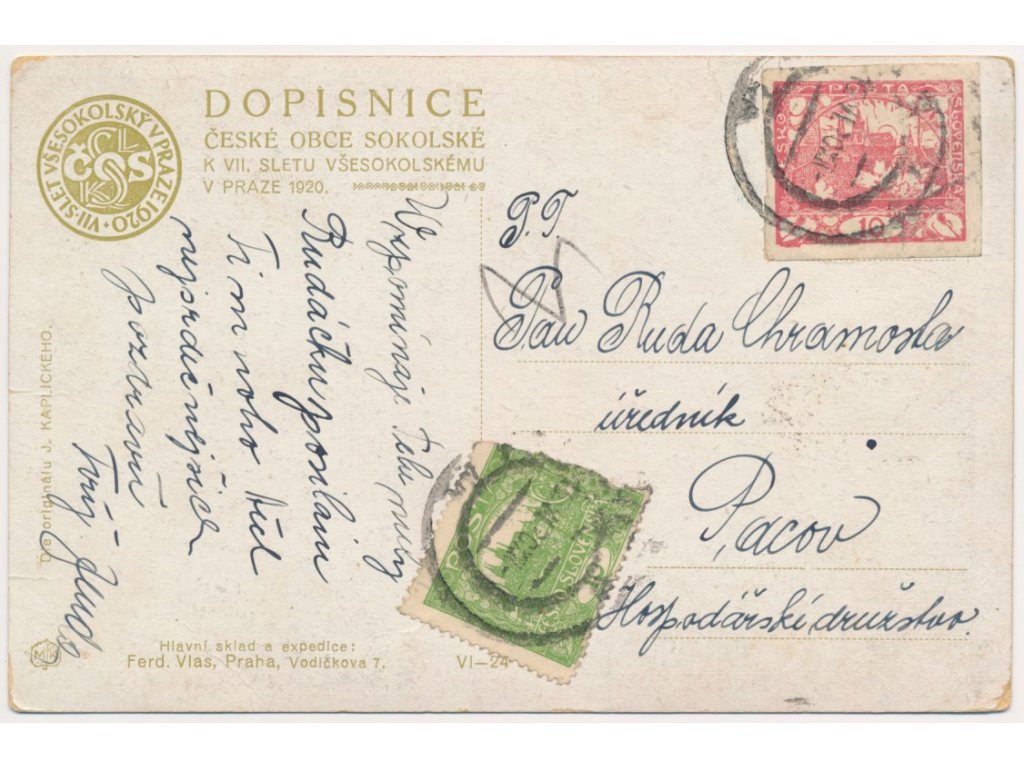 VII. SLET VŠESOKOLSKÝ V PRAZE 1920
ČOS
DOPISNICE
ČESKÉ OBCE SOKOLSKÉ
K VII. SLETU VŠESOKOLSKÉMU
V PRAZE 1920.
Vzpomínaje Tebe, milý
Rudáčku, posílám
Ti mnoho
nejsrdečnějších
pozdravů
Tvůj
P. T.
Pan Ruda Chramosta
úředník
Pacov
Hospodářské družstvo.
POŠTA
ČESKO SLOVENSKÁ
10
POŠTA
ČESKO SLOVENSKÁ
Dle originálu J. KAPLICKÉHO.
Hlavní sklad a expedice:
Ferd. Vlas, Praha, Vodičkova 7.
VI—24